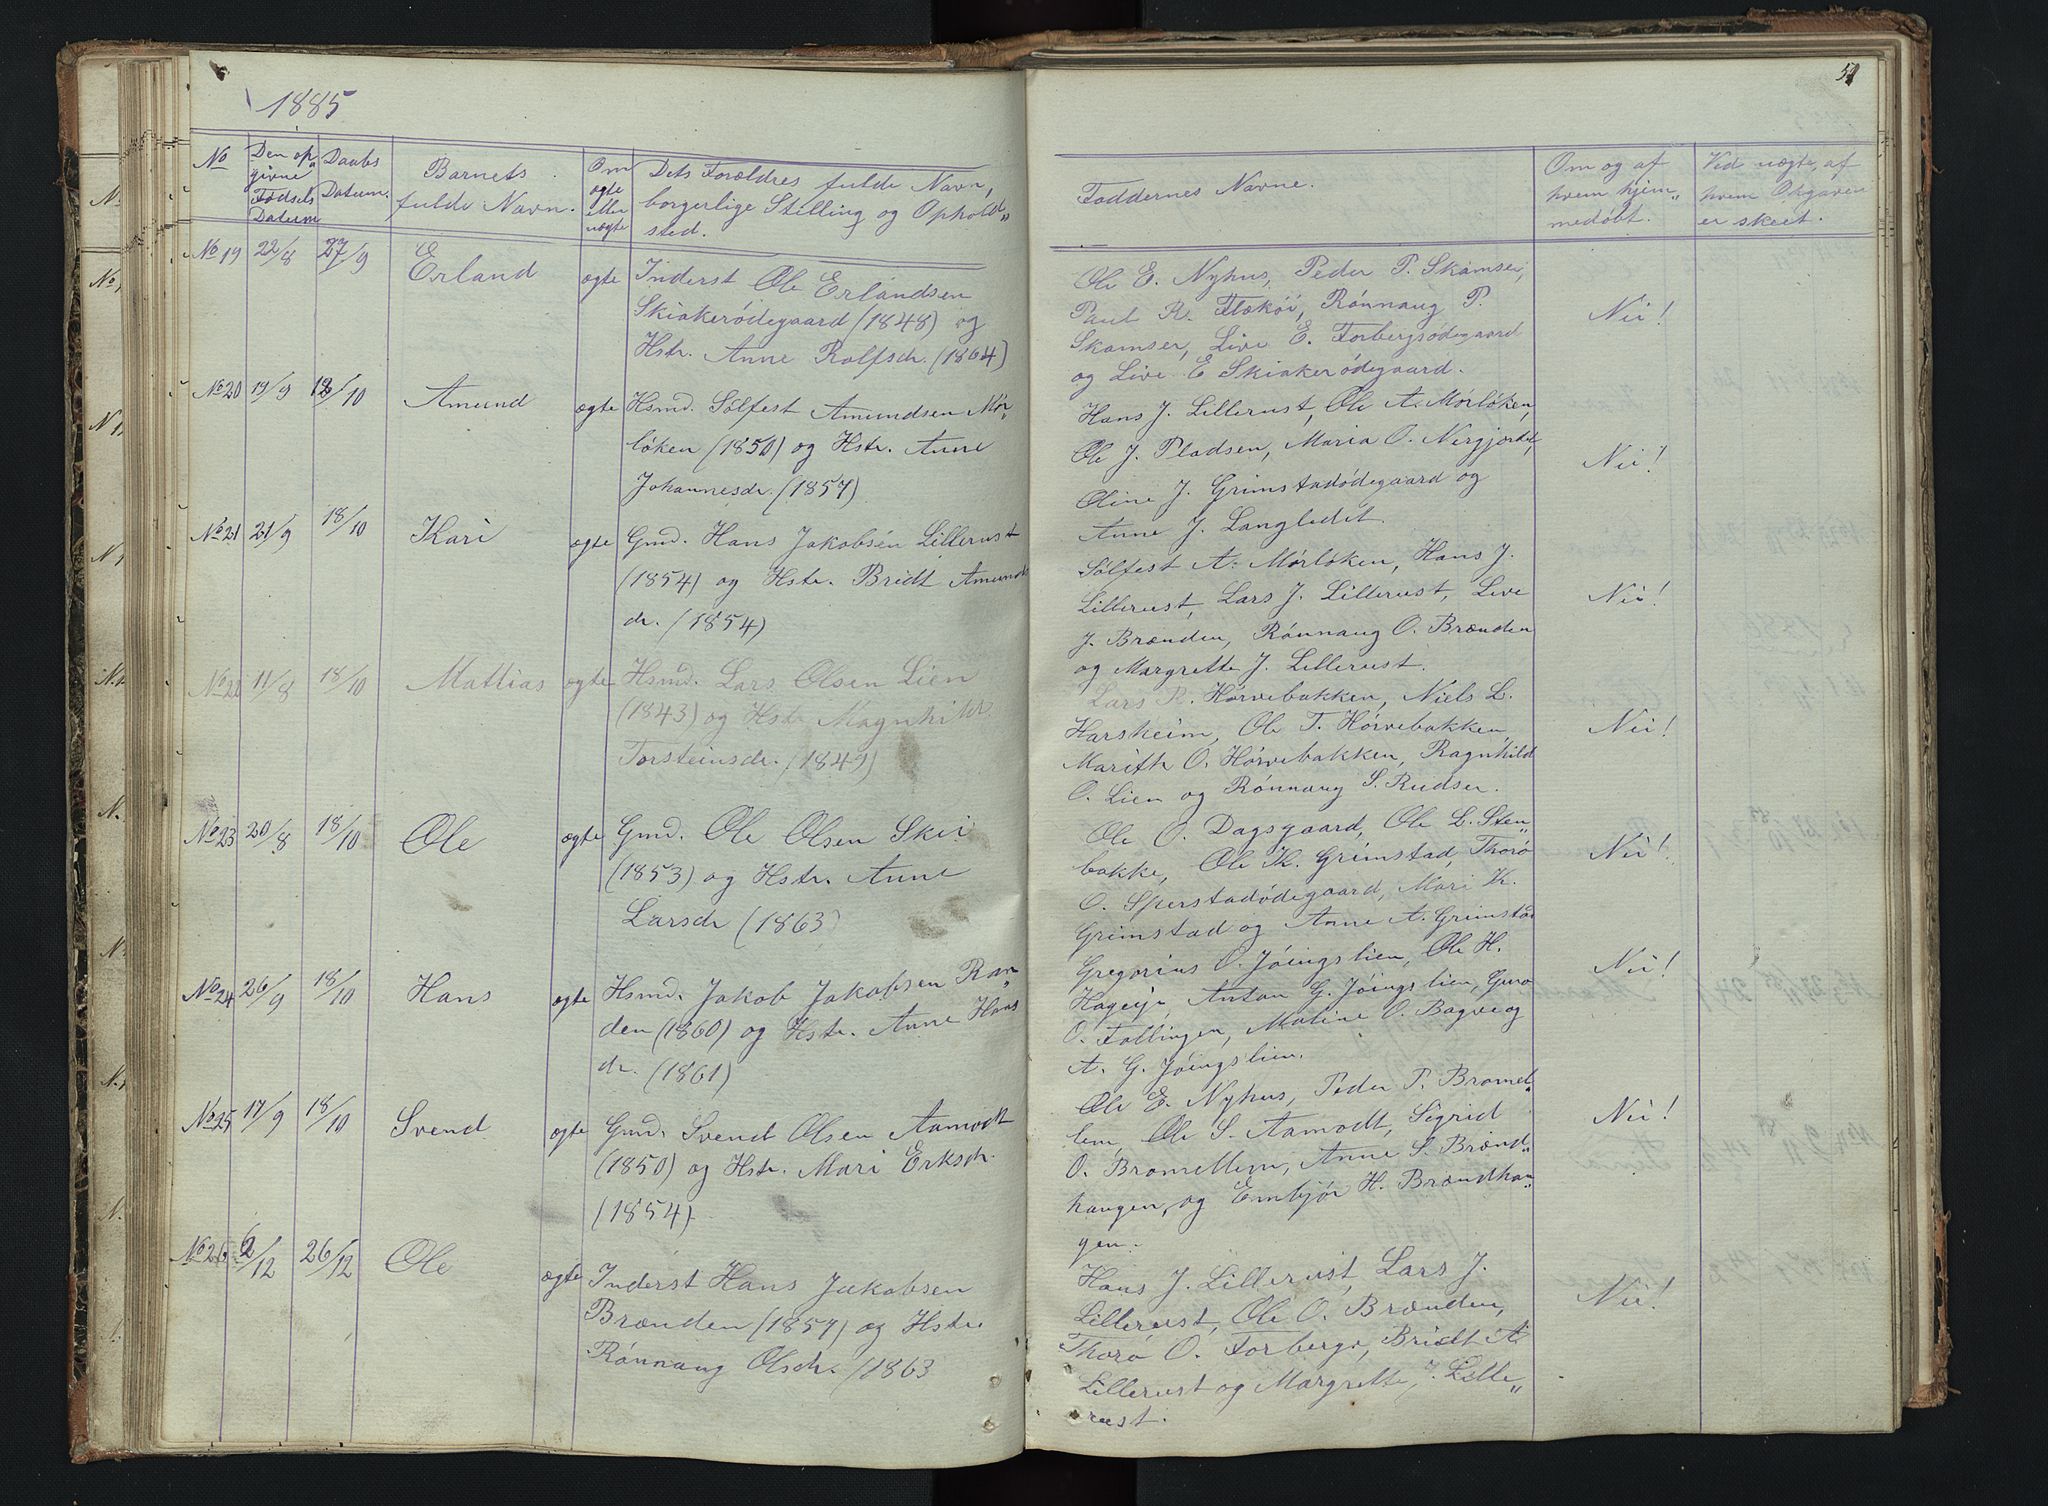 1885
51
No
Den op„
givne
Fødsels
Datum
Daabs
Datum.
Barnets
fulde Navn.
Om
ægte
eller
uægte
Dets Forældres fulde Navn,
borgerlige Stilling og Ophold„
sted.
Faddernes Navne.
Om og af
hvem hjem„
medøbt.
Ved uægte, af
hvem Opgaven
er skeet.
No 19 22/8 27/9 Erland ægte Inderst Ole Erlandsen
Skiakerødegaard (1848) og
Hstr. Anne Rolfsdr. (1864)
Ole E. Nyhus, Peder P. Skamser,
Paul R. Flækøi, Rønnaug P.
Skamser, Live E. Forbergsødegaard
og Live E Skiakerødegaard.
Nei!
No 20 19/9 18/10 Amund ægte Hsmd. Sølfest Amundsen Mør„
løken (1850) og Hstr. Anne
Johannesdr. (1857)
Hans J. Lillerust, Ole A. Mørløken,
Ole J. Pladsen, Maria O. Nergjordet,
Oline J. Grimstadødegaard og
Anne J. Langledet.
Nei!
No 21 21/9 18/10 Kari ægte Gmd. Hans Jakobsen Lillerust
(1854) og Hstr. Bridt Amunds
dr. (1854)
Sølfest A. Mørløken, Hans J.
Lillerust, Lars J. Lillerust, Live
J. Brænden, Rønnaug O. Brænden
og Margrette J. Lillerust.
Nei!
No 22 11/8 18/10 Mattias ægte Hsmd. Lars Olsen Lien
(1843) og Hstr. Magnhild
Torsteinsdr. (1849)
Lars R. Hørvebakken, Niels L.
Harsheim, Ole T. Hørvebakken,
Marith O. Hørvebakken, Ragnhild
O. Lien og Rønnaug S. Rudser.
Nei!
No 23 20/8 18/10 Ole ægte Gmd. Ole Olsen Skei
(1853) og Hstr. Anne
Larsdr (1863)
Ole O. Dagsgaard, Ole L. Sten„
bakke, Ole K. Grimstad, Thorø
O. Sperstadødegaard, Mari K.
Grimstad og Anne A. Grimstad
Nei!
No 24 26/9 18/10 Hans ægte Hsmd. Jakob Jakobsen Ran„
den (1860) og Hstr. Anne Hans
dr. (1861)
Gregorius O. Jøingslien, Ole H.
Hageje, Anton G. Jøingslien, Guro
O. Follingen, Maline O. Bagve og
A. G. Jøingslien.
Nei!
No 25 17/9 18/10 Svend ægte Gmd. Svend Olsen Aamodt
(1850) og Hstr. Mari Erksdr.
(1854).
Ole E. Nyhus, Peder P. Bramel„
lem, Ole S. Aamodt, Sigrid
O. Bramellem, Anne S. Brænd„
haugen, og Embjør H. Brændhau„
gen.
Nei!
No 26 2/12 26/12 Ole ægte Inderst Hans Jakobsen
Brænden (1857) og Hstr.
Rønnaug Olsdr. (1863
Hans J. Lillerust, Lars J.
Lillerust, Ole O. Brænden,
Thorø O. Forberge, Bridt A
Lillerust og Margrette J. Lille„
rust.
Nei!